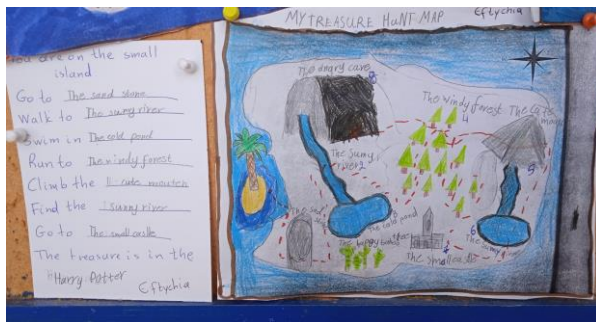 You are on the small
island
Go to The sead stone
Walk to The sunny river
Swim in The cold pond
Run to The windy forest
Climb the
Find the sunny river
Go to The small castle
The treasure is in the
"Harry Potter
Eftychia
MY TREASURE HUNT MAP
Eftychia
The angry cave 8
The windy forest
4
The cute
5
The sunny
river 2
The
The cold pond
The happy
6
The sunny
7
The small